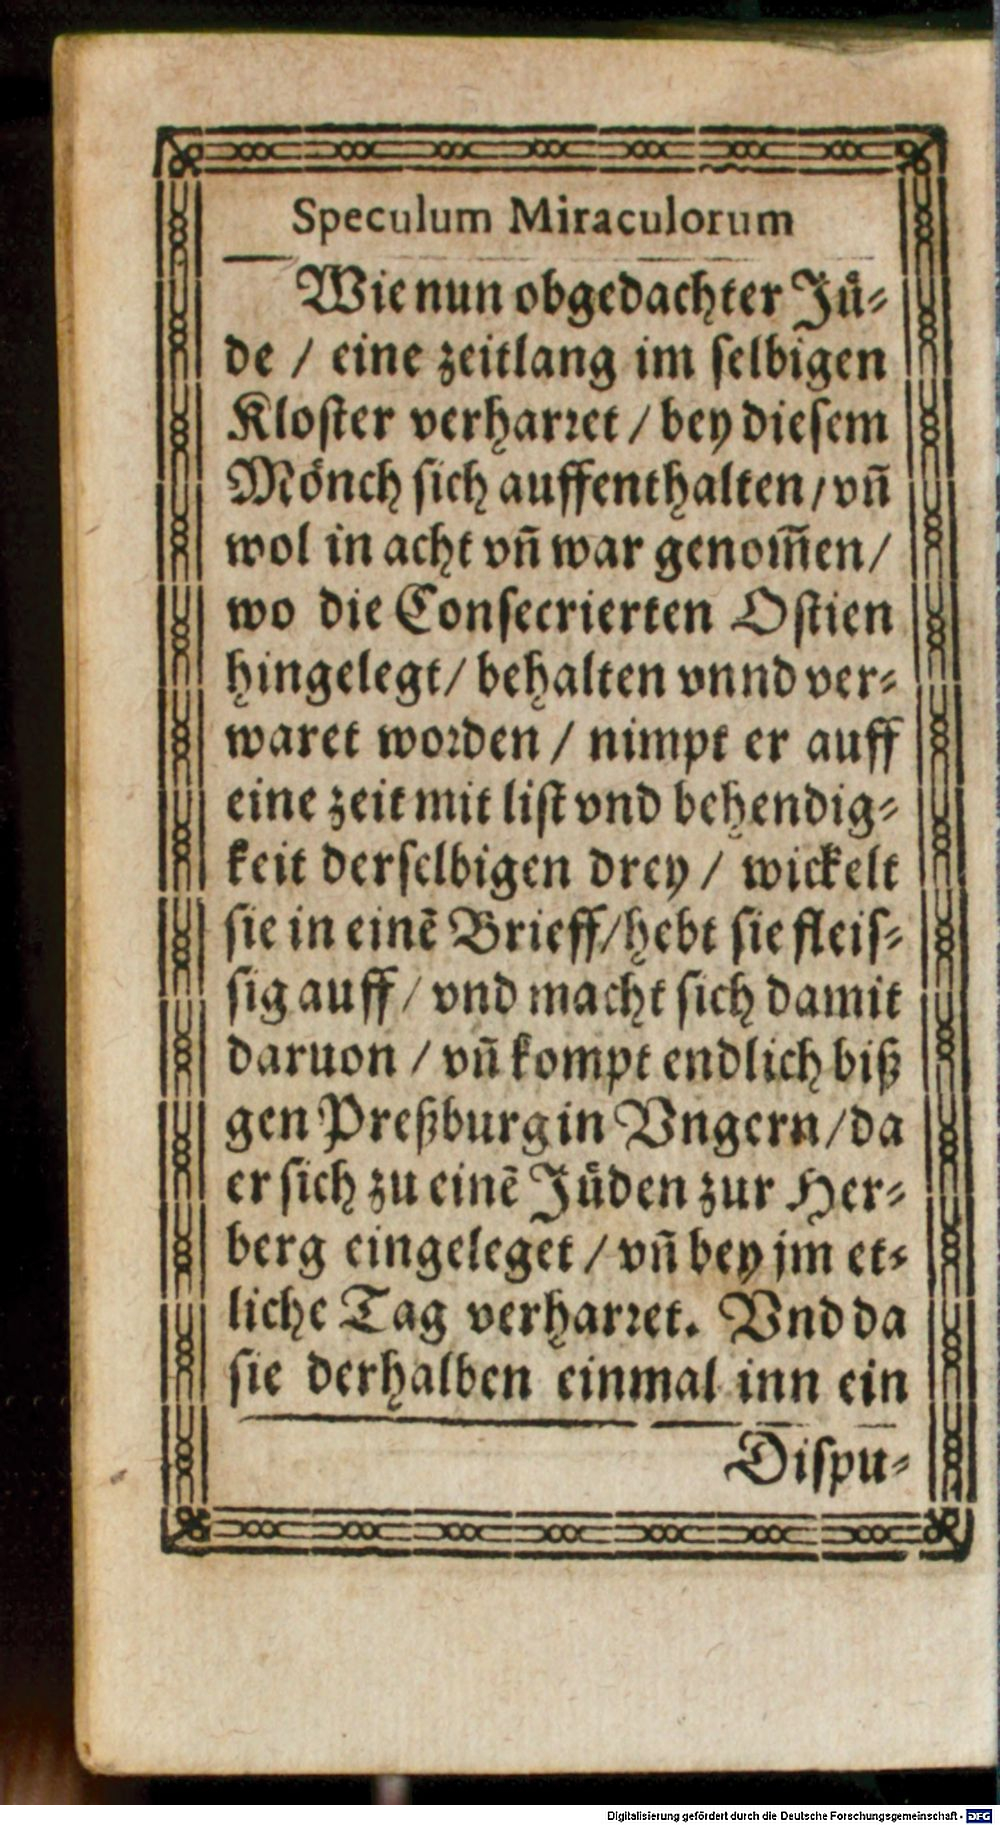 Speculum Miraculorum
Wie nun obgedachter Juͤ⸗
de / eine zeitlang im ſelbigen
Kloſter verharꝛet / bey dieſem
Moͤnch ſich auffenthalten / vñ
wol in acht vñ war genom̃en /
wo die Conſecrierten Oſtien
hingelegt / behalten vnnd ver⸗
waret woꝛden / nimpt er auff
eine zeit mit liſt vnd behendig⸗
keit derſelbigen drey / wickelt
ſie in einē Brieff / hebt ſie fleiſ⸗
ſig auff / vnd macht ſich damit
daruon / vñ kompt endlich biß
gen Preßburg in Vngern / da
er ſich zu einē Juͤden zur Her⸗
berg eingeleget / vñ bey jm et⸗
liche Tag verharꝛet. Vnd da
ſie derhalben einmal inn ein
Diſpu⸗
Digitalisierung gefördert durch die Deutsche Forschungsgemeinschaft - DFG